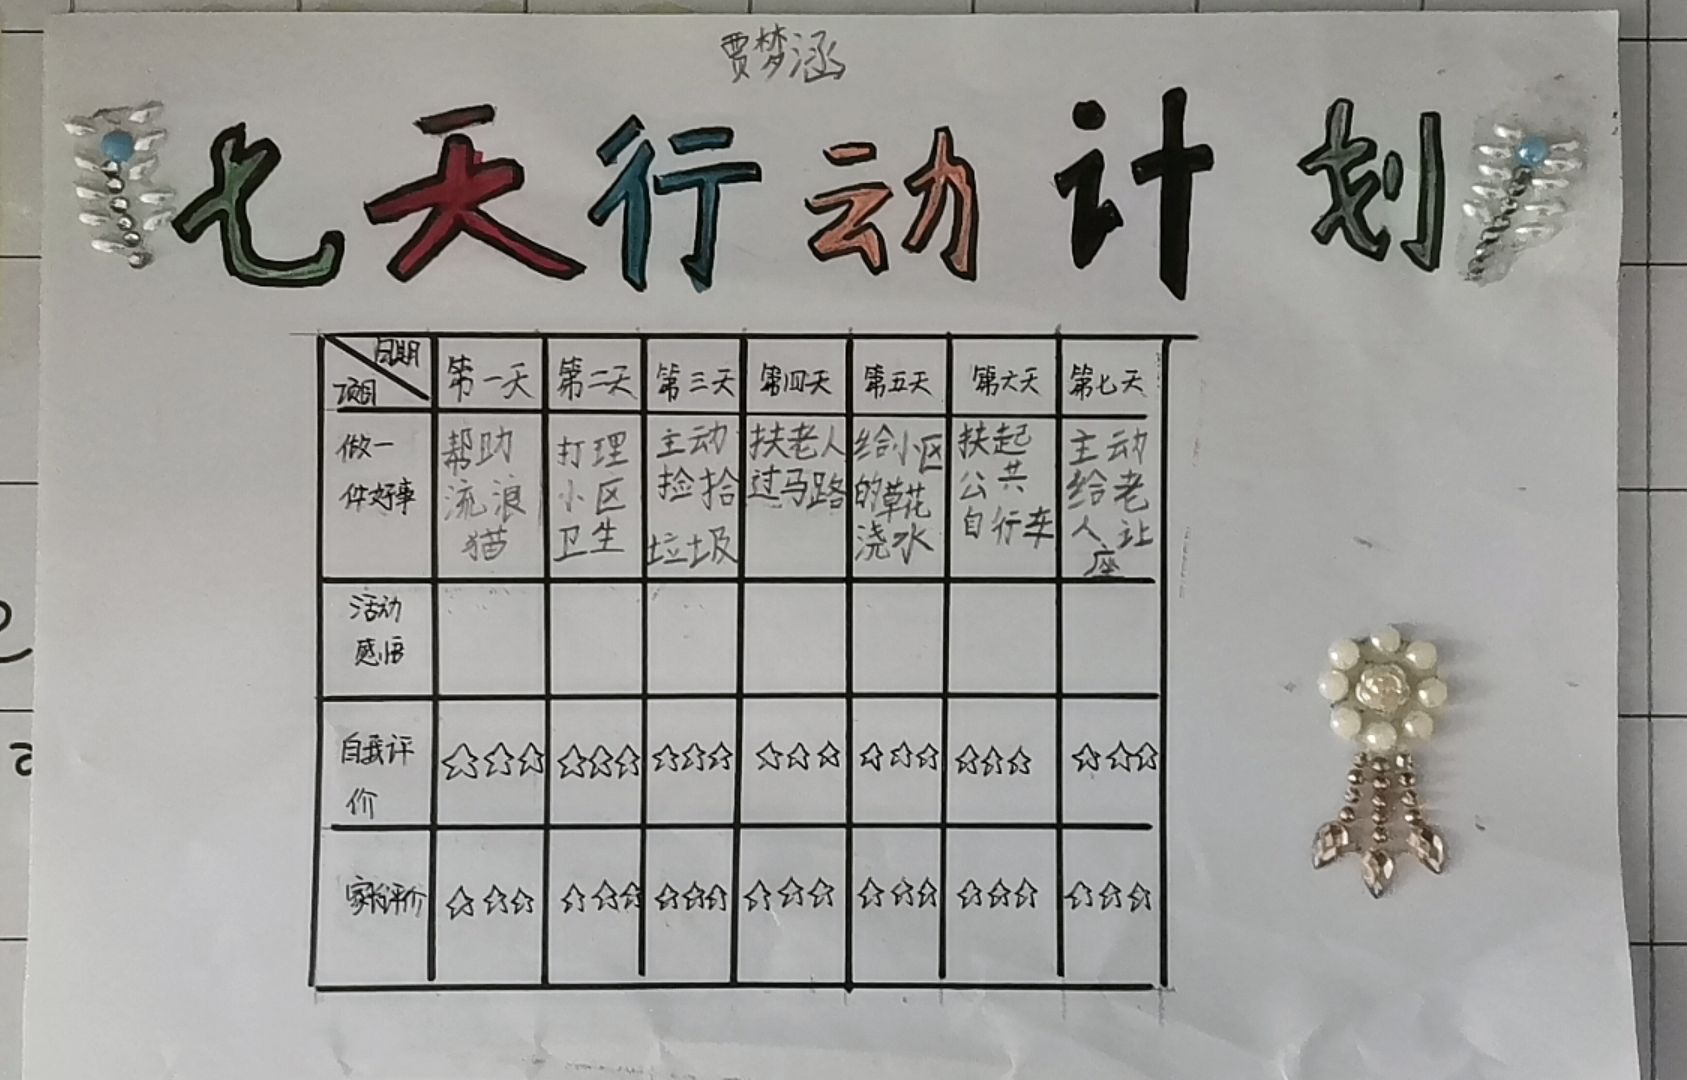 贾梦涵
七天行动计划
日期
项目
第一天 第二天 第三天 第四天 第五天 第六天 第七天
做一
件好事
帮助
流浪
猫
打理
小区
卫生
主动
捡拾
垃圾
扶老人
过马路
给小区
的草花
浇水
扶起
公共
自行车
主动
给老
人让
座
活动
感悟
自我评
价
☆☆☆ ☆☆☆ ☆☆☆ ☆☆☆ ☆☆☆ ☆☆☆ ☆☆☆
家长评价
☆☆☆ ☆☆☆ ☆☆☆ ☆☆☆ ☆☆☆ ☆☆☆ ☆☆☆